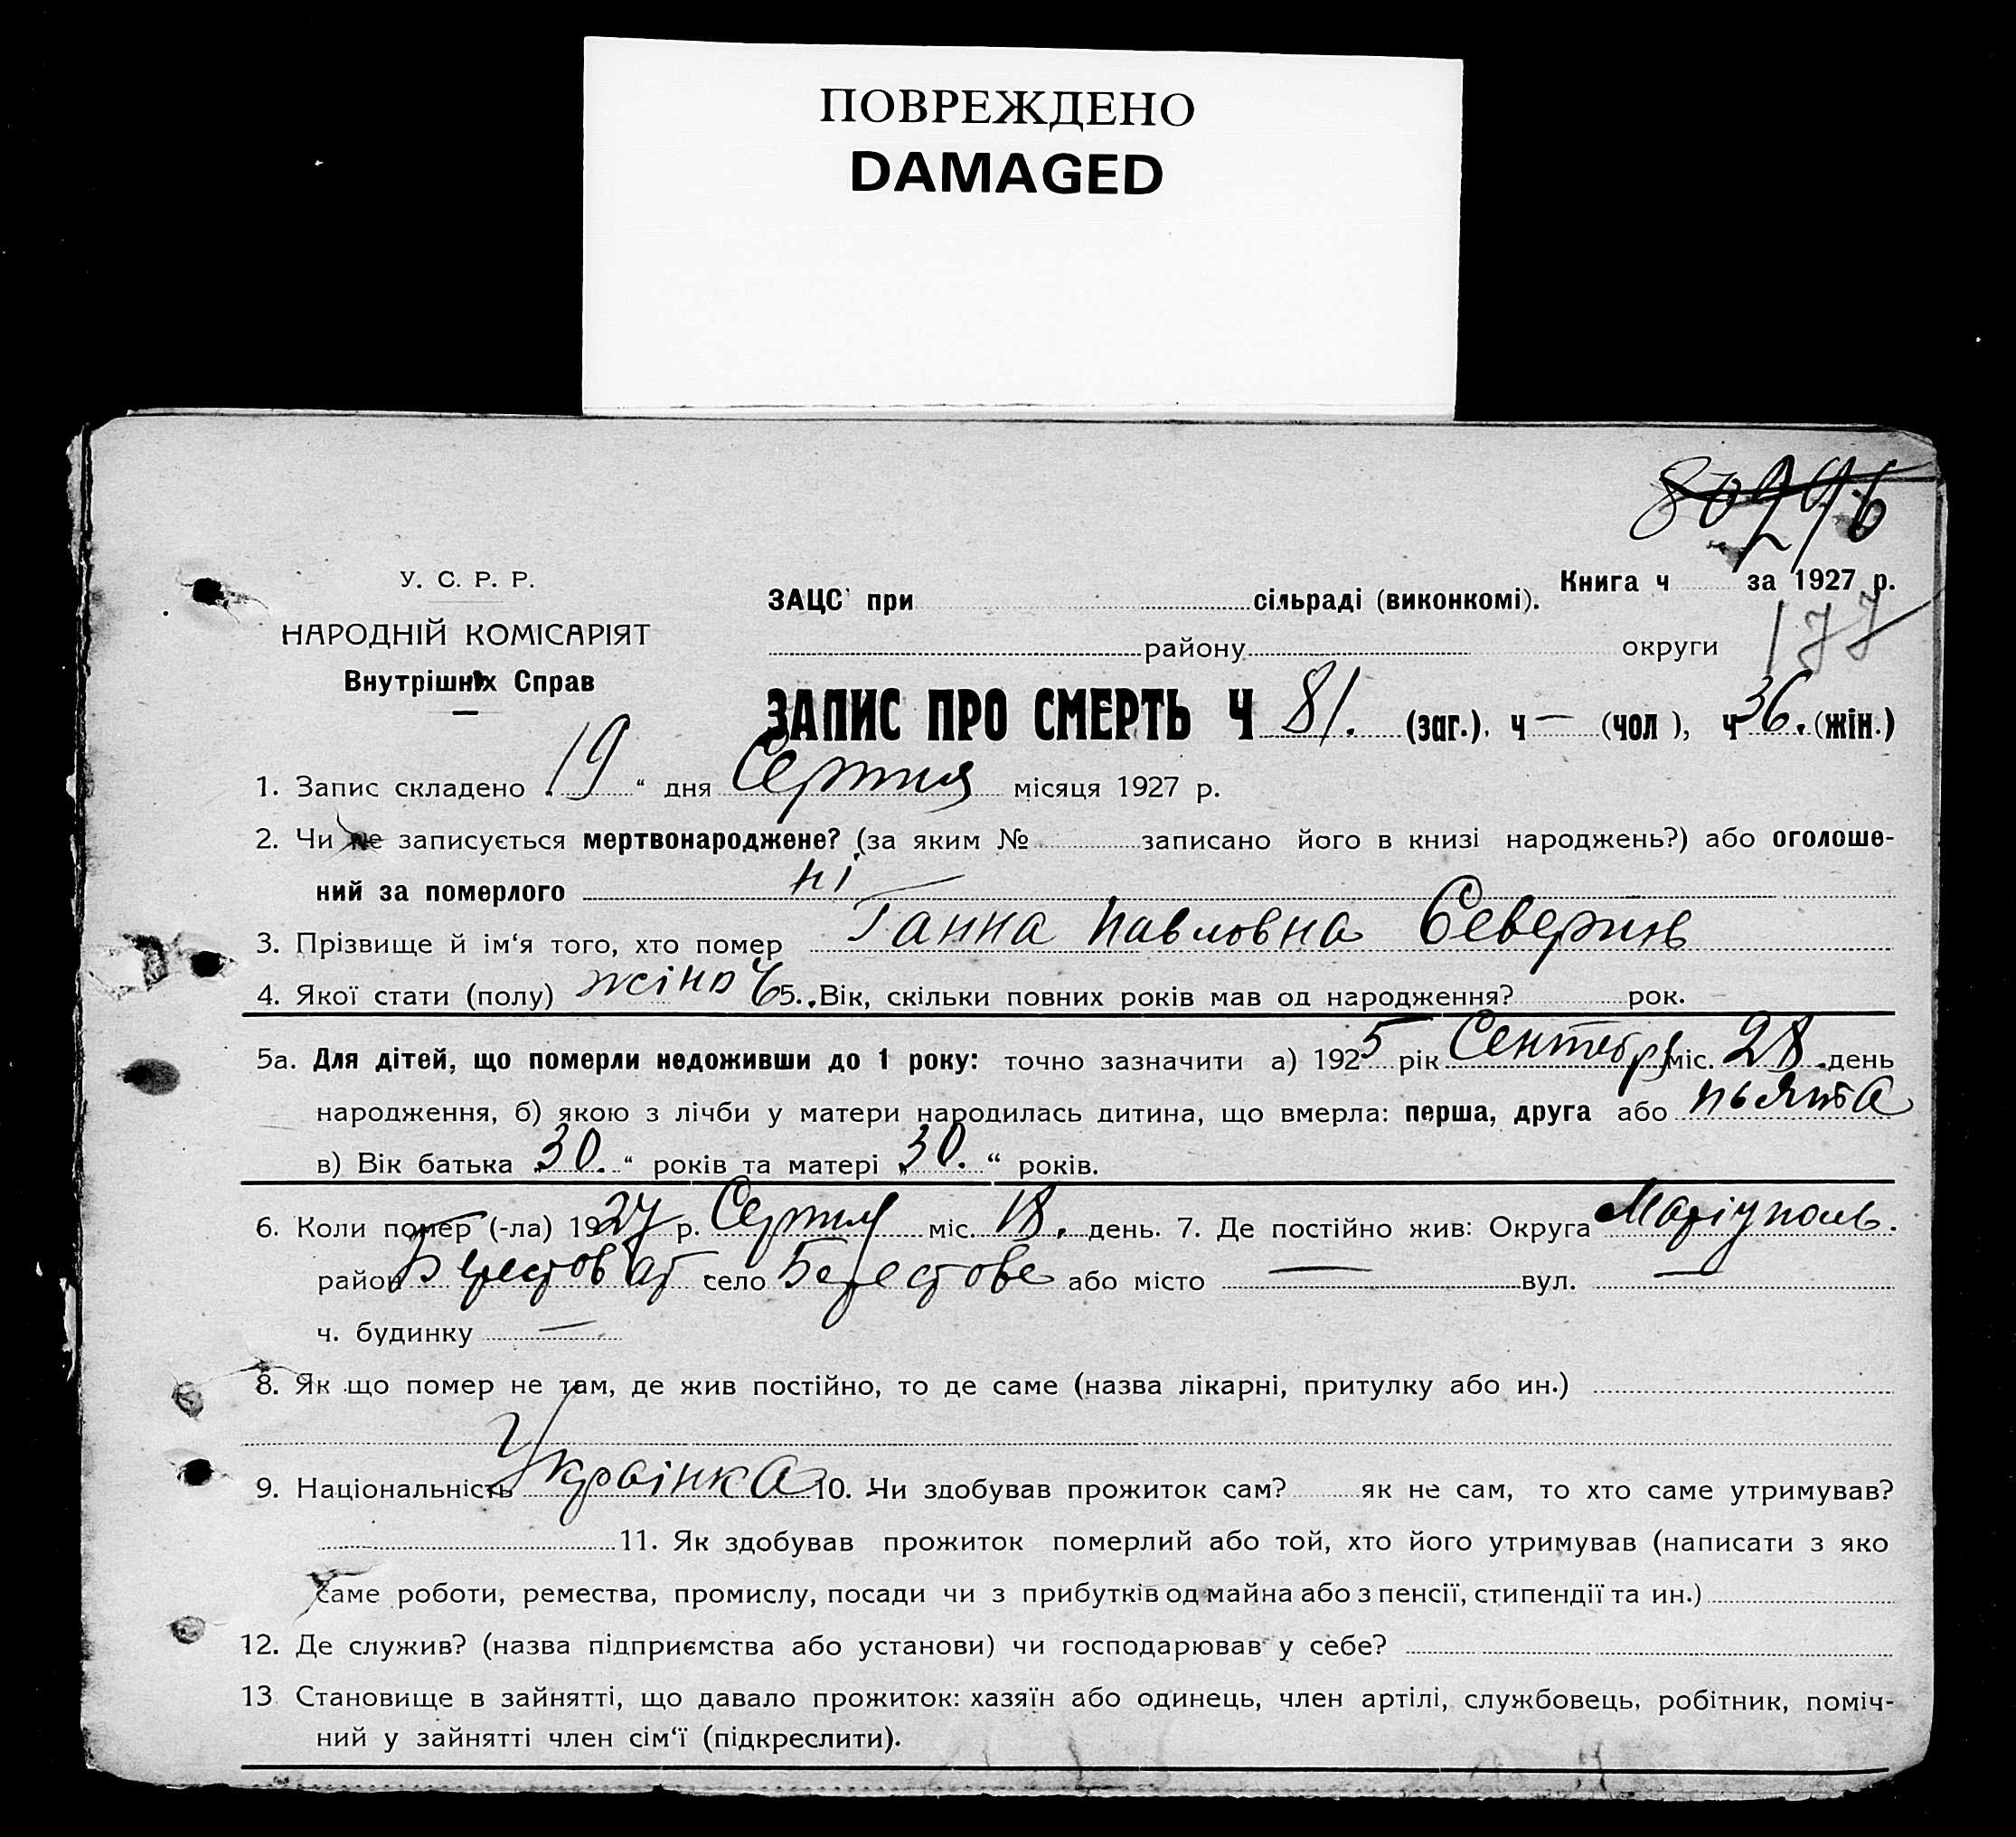 ПОВРЕЖДЕНО
DAMAGED
У. С. Р. Р.
НАРОДНІЙ КОМІСАРІЯТ
Внутрішніх Справ
Книга ч за 1927 р.
ЗАЦС при сільраді (виконкомі).
району округи 177
ЗАПИС ПРО СМЕРТЬ Ч 81. (заг.). ч — (чол), ч 36. (жін.)
1. Запис складено 19 “ дня Серпня місяця 1927 р.
2. Чи не записується мертвонароджене? (за яким № записано його в книзі народжень?) або оголоше-
ний за померлого ні
3. Прізвище й ім‘я того, хто помер Ганна Павловна Северин
4. Якої стати (полу) жіноч 5. Вік, скільки повних років мав од народження? рок.
5а. Для дітей, що померли недоживши до 1 року: точно зазначити а) 1925 рік Сентебр міс. 28 день
народження, б) якою з лічби у матери народилась дитина, що вмерла: перша, друга або пьята
в) Вік батька 30. “ років та матері „30. “ років.
6. Коли помер (-ла) 1927 р. Серпня міс. 18. день. 7. Де постійно жив: Округа Маріуполь.
район Берестоват село Берестове або місто — вул. —
ч. будинку —
8. Як що помер не там, де жив постійно, то де саме (назва лікарні, притулку або ин.)
9. Національність Украінка 10. Чи здобував прожиток сам? як не сам, то хто саме утримував?
11. Як здобував прожиток померлий або той, хто його утримував (написати з яко
саме роботи, ремества, промислу, посади чи з прибутків од майна або з пенсії, стипендії та ин.)
12. Де служив? (назва підприємства або установи) чи господарював у себе?
13 Становище в зайнятті, що давало прожиток: хазяїн або одинець, член артілі, службовець, робітник, поміч-
ний у зайнятті член сім‘ї (підкреслити).